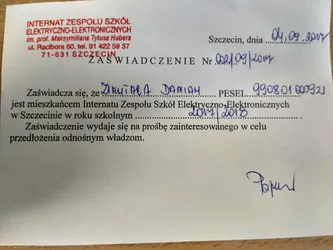 INTERNAT ZESPOŁU SZKÓŁ
ELEKTRYCZNO-ELEKTRONICZNYCH
im. prof. Maksymiliana Tytusa Hubera
ul. Racibora 60, tel. 91 422 59 37
71-631 SZCZECIN
Szczecin, dnia 04.09.2017
ZAŚWIADCZENIE Nr 002/09/2017
Zaświadcza się, że DAMIAN PESEL
jest mieszkańcem Internatu Zespołu Szkół Elektryczno-Elektronicznych
w Szczecinie w roku szkolnym 2017/2018
Zaświadczenie wydaje się na prośbę zainteresowanego w celu
przedłożenia odnośnym władzom.